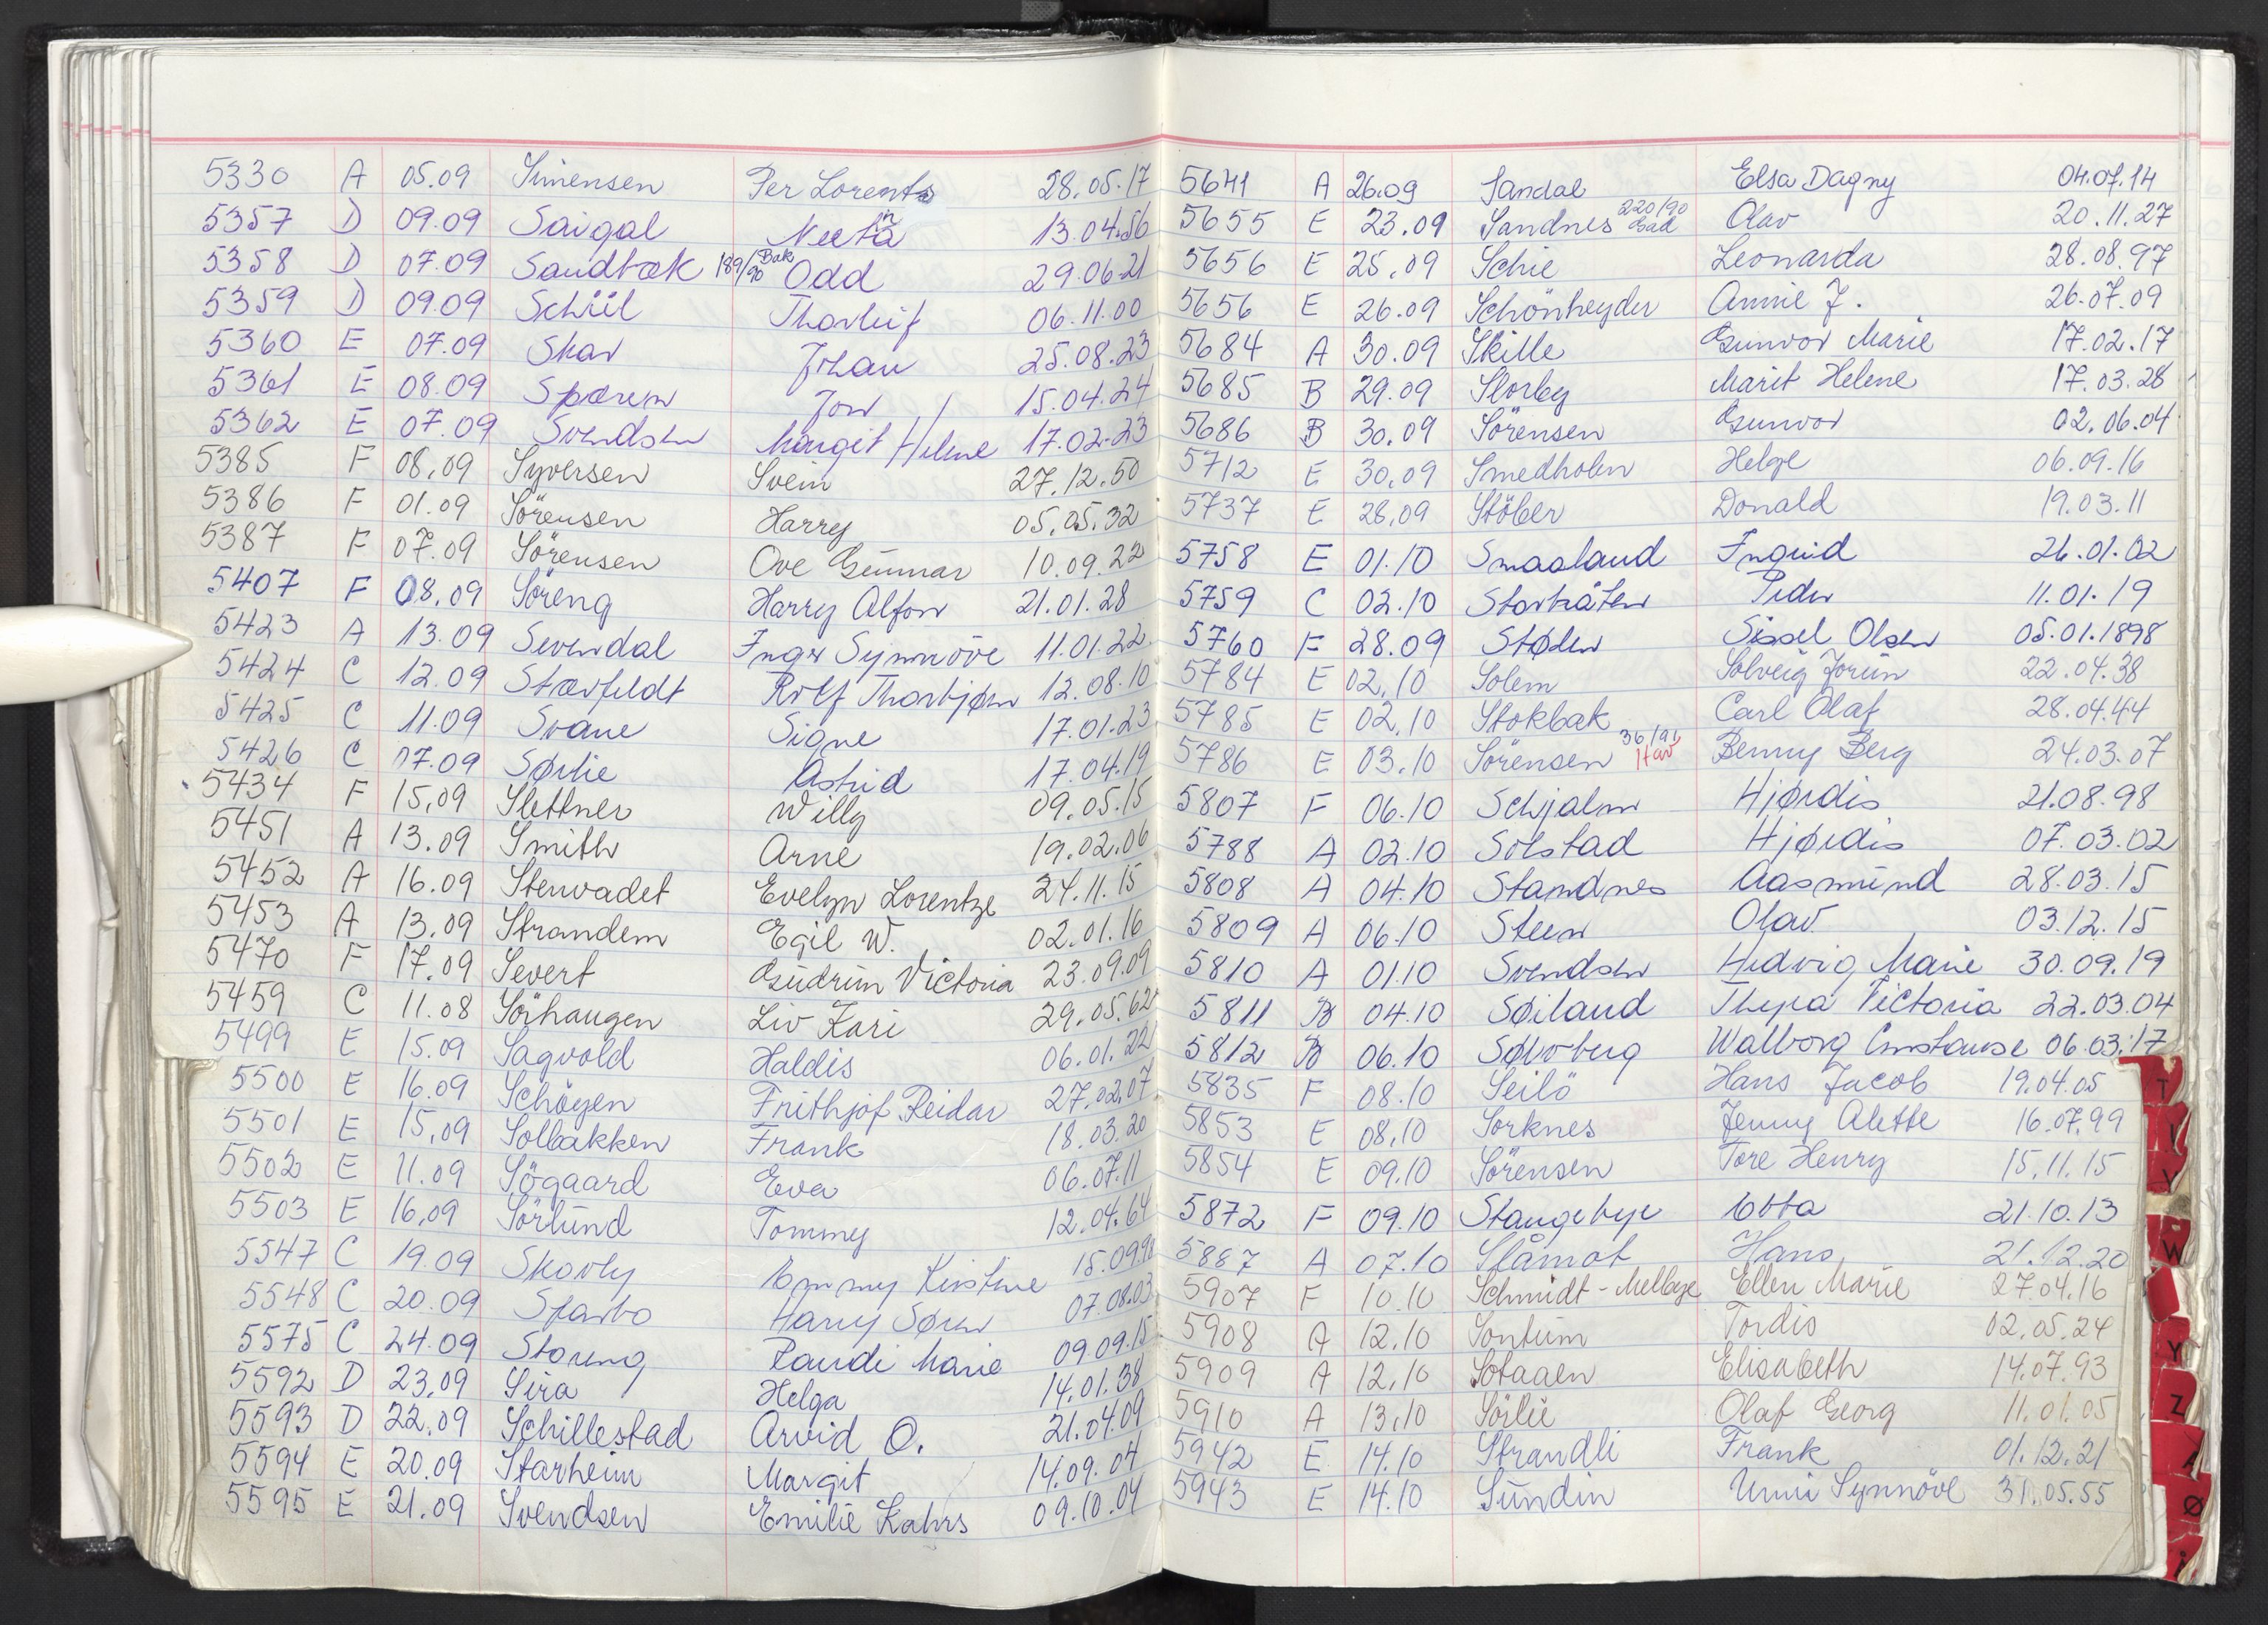 5330 A 05.09 Simensen Per Lorents 28.05.17
5357 D 09.09 Saigal Neeta n 13.04.56
5358 D 07.09 Sandbæk 189/90 Bak Odd 29.06.21
5359 D 09.09 Schiil Thorleif 06.11.00
5360 E 07.09 Skar Johan 25.08.23
5361 E 08.09 Spæren Jon 15.04.24
5362 E 07.09 Svendsen Margit Helene 17.02.23
5385 F 08.09 Syversen Svein 27.12.50
5386 F 01.09 Sörensen Harry 05.05.32
5387 F 07.09 Sörensen Ove Gunnar 10.09.22
5407 F 08.09 Söreng Harry Alfon 21.01.28
5423 A 13.09 Sevendal Inger Synnöve 11.01.22
5424 C 12.09 Starfeldt Rolf Thorbjørn 12.08.10
5425 C 11.09 Svane Signe 17.01.23
5426 C 17.09 Sørlie Astrid 17.04.19
5434 F 15.09 Slettner Willy 09.05.15
5451 A 13.09 Smith Arne 19.02.06
5452 A 16.09 Stenvadet Evelyn Lorentze 24.11.15
5453 A 13.09 Strandem Egil W. 02.01.16
5470 F 17.09 Severt Gudrun Victoria 23.09.09
5459 C 11.08 Sörhaugen Liv Kari 29.05.62
5499 E 15.09 Sagvold Haldis 06.01.22
5500 E 16.09 Schöyen Frithjof Reidar 27.02.07
5501 E 15.09 Solbakken Frank 18.03.20
5502 E 11.09 Sögaard Eva 06.07.11
5503 E 16.09 Sörlund Tommy 12.04.64
5547 C 19.09 Skovly Emmy Kirstine 15.09.98
5548 C 20.09 Sparbo Harry Søren 07.08.03
5575 C 24.09 Storeng Randi Marie 09.09.15
5592 D 23.09 Sira Helga 14.01.38
5593 D 22.09 Schillestad Arvid O. 21.04.09
5594 E 20.09 Starheim Margit 14.09.04
5595 E 21.09 Svendsen Emilie Kahrs 09.10.04
5641 A 26.09 Sandal Elsa Dagny 04.07.14
5655 E 23.09 Sandnes 220/90 Olav 20.11.27
5656 E 25.09 Schie Leonarda 28.08.97
5656 E 26.09 Schönheyder Annie J. 26.07.09
5684 A 30.09 Skille Gunvor Marie 17.02.17
5685 B 29.09 Slorby Marit Helene 17.03.28
5686 B 30.09 Sörensen Gunvor 02.06.04
5712 E 30.09 Smedholen Helge 06.09.16
5737 E 28.09 Stöber Donald 19.03.11
5758 E 01.10 Smaaland Ingrid 26.01.02
5759 C 02.10 Storbråten Peder 11.01.19
5760 F 28.09 Støler Sissel Olsen 05.01.1898
5784 E 02.10 Solem Solveig Jorun 22.04.38
5785 E 02.10 Stokbak Carl Olaf 28.04.44
5786 E 03.10 Sörensen 36/91 Hav Benny Berg 24.03.07
5807 F 06.10 Schjalm Hjørdis 21.08.98
5788 A 02.10 Solstad Hjørdis 07.03.02
5808 A 04.10 Standnes Aasmund 28.03.15
5809 A 06.10 Steen Olav 03.12.15
5810 A 01.10 Svendsen Hedvig Marie 30.09.19
5811 B 04.10 Søiland Thyra Victoria 22.03.04
5812 B 06.10 Sølvberg Walborg Constanse 06.03.17
5835 F 08.10 Seilö Hans Jacob 19.04.05
5853 E 08.10 Sorknes Jenny Alette 16.07.99
5854 E 09.10 Sörensen Tore Henry 15.11.15
5872 F 09.10 Stangebye Ebba 21.10.13
5887 A 07.10 Slåmot Hans 21.12.20
5907 F 10.10 Schmidt-Melbye Ellen Marie 27.04.16
5908 A 12.10 Sontum Tordis 02.05.24
5909 A 12.10 Sotaaen Elisabeth 14.07.93
5910 A 13.10 Sörlie Olaf Georg 11.01.05
5942 E 14.10 Strandli Frank 01.12.21
5943 E 14.10 Sundin Unni Synnöve 31.05.55
T
V
W
Y
Z
Ø